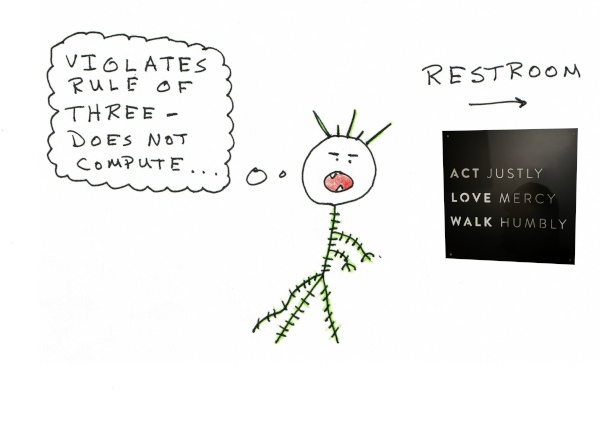 VIOLATES
RULE OF
THREE -
DOES NOT
COMPUTE...
RESTROOM
ACT JUSTLY
LOVE MERCY
WALK HUMBLY